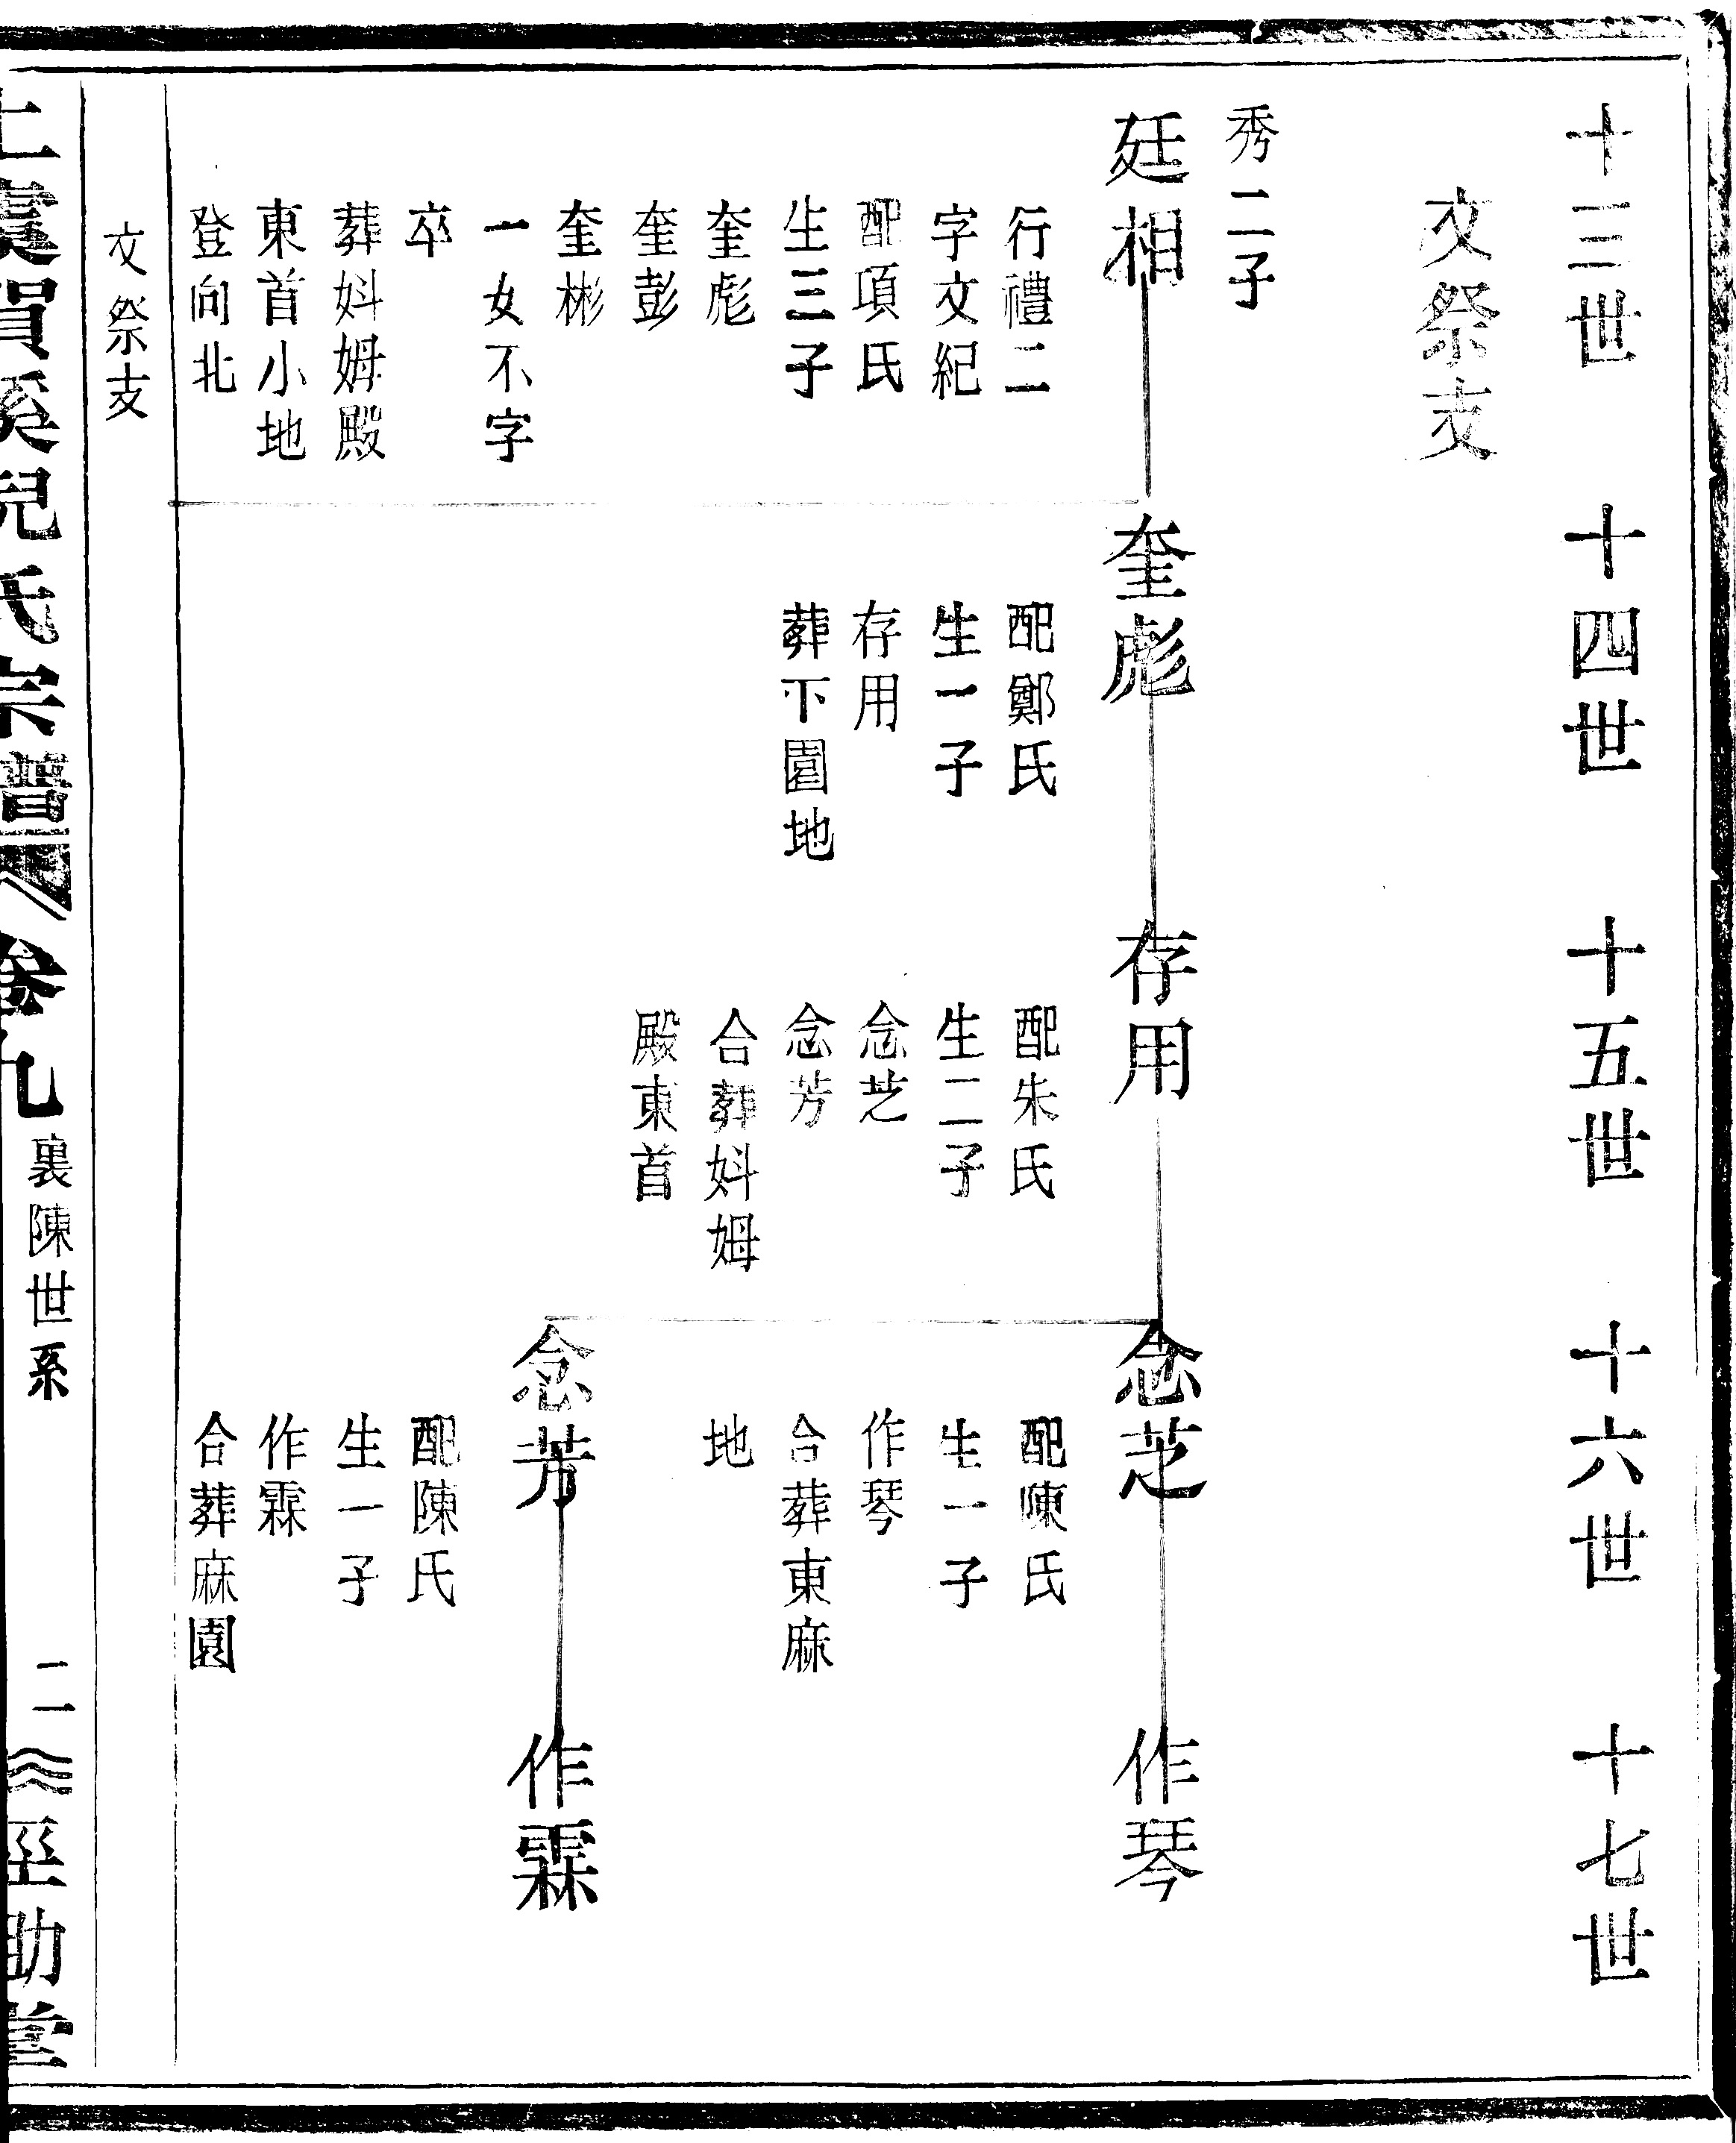 十三世
十四世
十五世
十六世
十七世
文祭支
秀二子
廷相
行禮二
字文紀
配項氏
生三子
奎彪
奎彭
奎彬
一女不字
卒
葬㚵姆殿
東首小地
登向北
奎彪
配鄭氏
生一子
存用
葬下園地
存用
配朱氏
生二子
念芝
念芳
合葬㚵姆
殿東首
念芝
配陳氏
生一子
作琴
合葬東麻
地
念芳
配陳氏
生一子
作霖
合葬麻園
作琴
作霖
文祭支
上虞賀溪兒氏宗譜
卷九
裏陳世系
二
經助堂